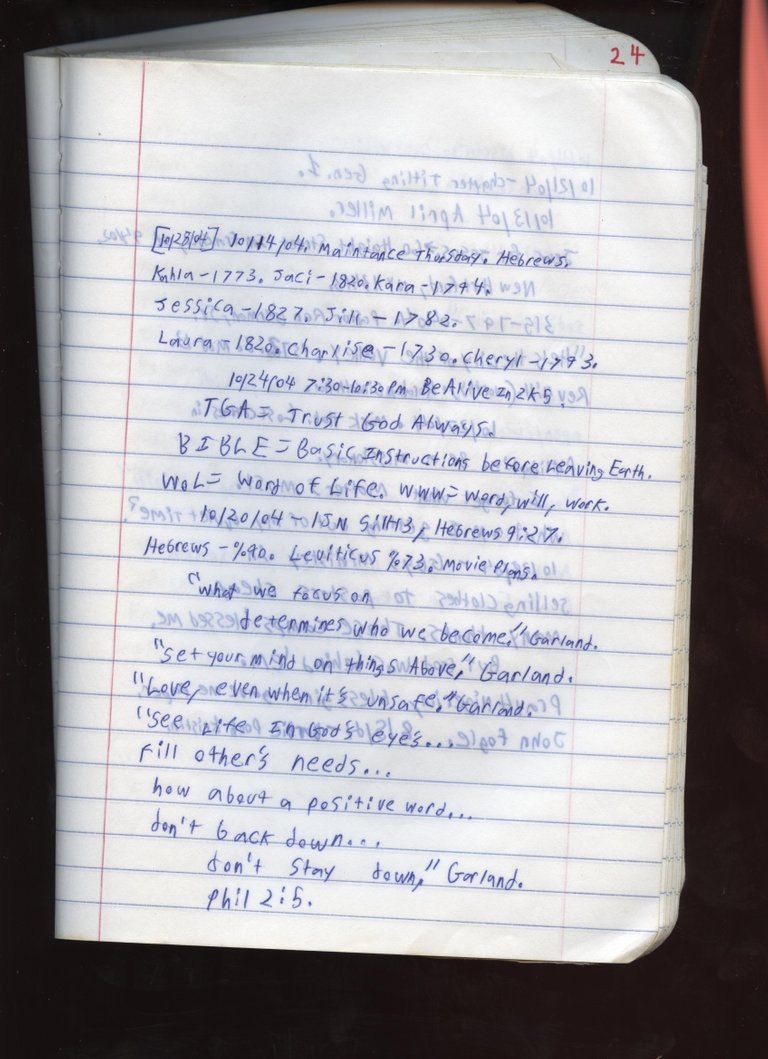 24
[10/28/04] 10/14/04. Maintance Thursday. Hebrews.
Kahla-1773. Jaci-1820. Kara-1744.
Jessica-1827. Jill-1782.
Laura-1820. Charlise-1730. Cheryl-1793.
10/24/04 7:30-10:30pm Be Alive In 2K5.
TGA= Trust God Always.
BIBLE= Basic Instructions before Leaving Earth.
WOL= Word of Life. WWW= Word, will, work.
10/20/04-1JN 5:11+13, Hebrews 9:27.
Hebrews-%90. Leviticus %73. Movie Plans.
"what we focus on
determines who we become," Garland.
"Set your mind on things Above," Garland.
"Love, even when it's unsafe," Garland.
"See Life In God's eye's...
fill other's needs...
how about a positive word...
don't back down...
don't stay down," Garland.
Phil 2:5.